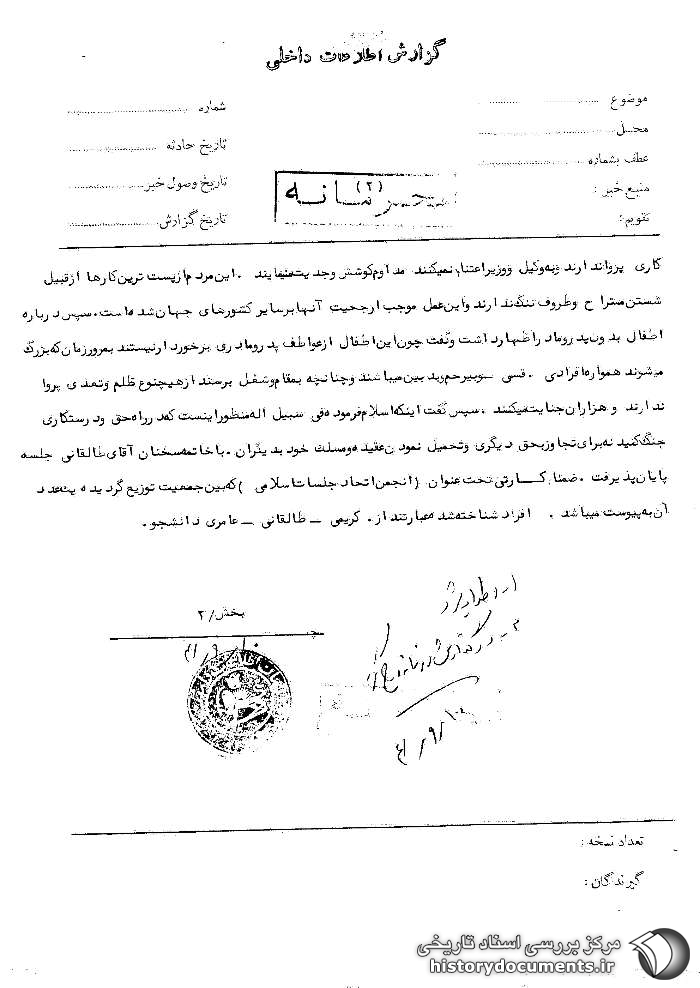 گزارش اطلاعات داخلی
موضوع
شماره
محل
تاریخ حادثه
عطف بشماره
تاریخ وصول خبر
منبع خبر :
تاریخ گزارش
تقویم:
(۲)
محرمانه
کاری پروا ندارند وبه وکیل ووزیر اعتناء نمیکنند مداوم کوشش وجدیت مینمایند . این مردم از پست ترین کارها از قبیل
شستن مستراح وظروف ننگ ندارند واین عمل موجب ارجحیت آنها بر سایر کشورهای جهان شده است . سپس درباره
اطفال بدون پدرومادر اظهار داشت وگفت چون این اطفال از عواطف پدرومادری برخوردار نیستند بمرور زمان که بزرگ
میشوند همواره افرادی . قسی وبیرحم وبدبین میباشند وچنانچه بمقام وشغل برسند از هیچنوع ظلم وتعدی پروا
ندارند و هزاران جنایت میکنند . سپس گفت اینکه اسلام فرموده فی سبیل اله منظور اینست که در راه حق ودرستکاری
جنگ کنید نه برای تجاوز بحق دیگری وتحمیل نمودن عقیده ومسلک خود بدیگران . با خاتمه سخنان آقای طالقانی جلسه
پایان پذیرفت . ضمنا کارتی تحت عنوان (انجمن اتحاد جلسات اسلامی ) که بین جمعیت توزیع گردیده یک عدد
آن به پیوست میباشد . افراد شناخته شده عبارتند از . کریمی ــ طالقانی ــ عامری دانشجو .
بخش / ۲
۴۱/۹/۱۰
تعداد نسخه :
گیرندگان :
مرکز بررسی اسناد تاریخی
historydocuments.ir